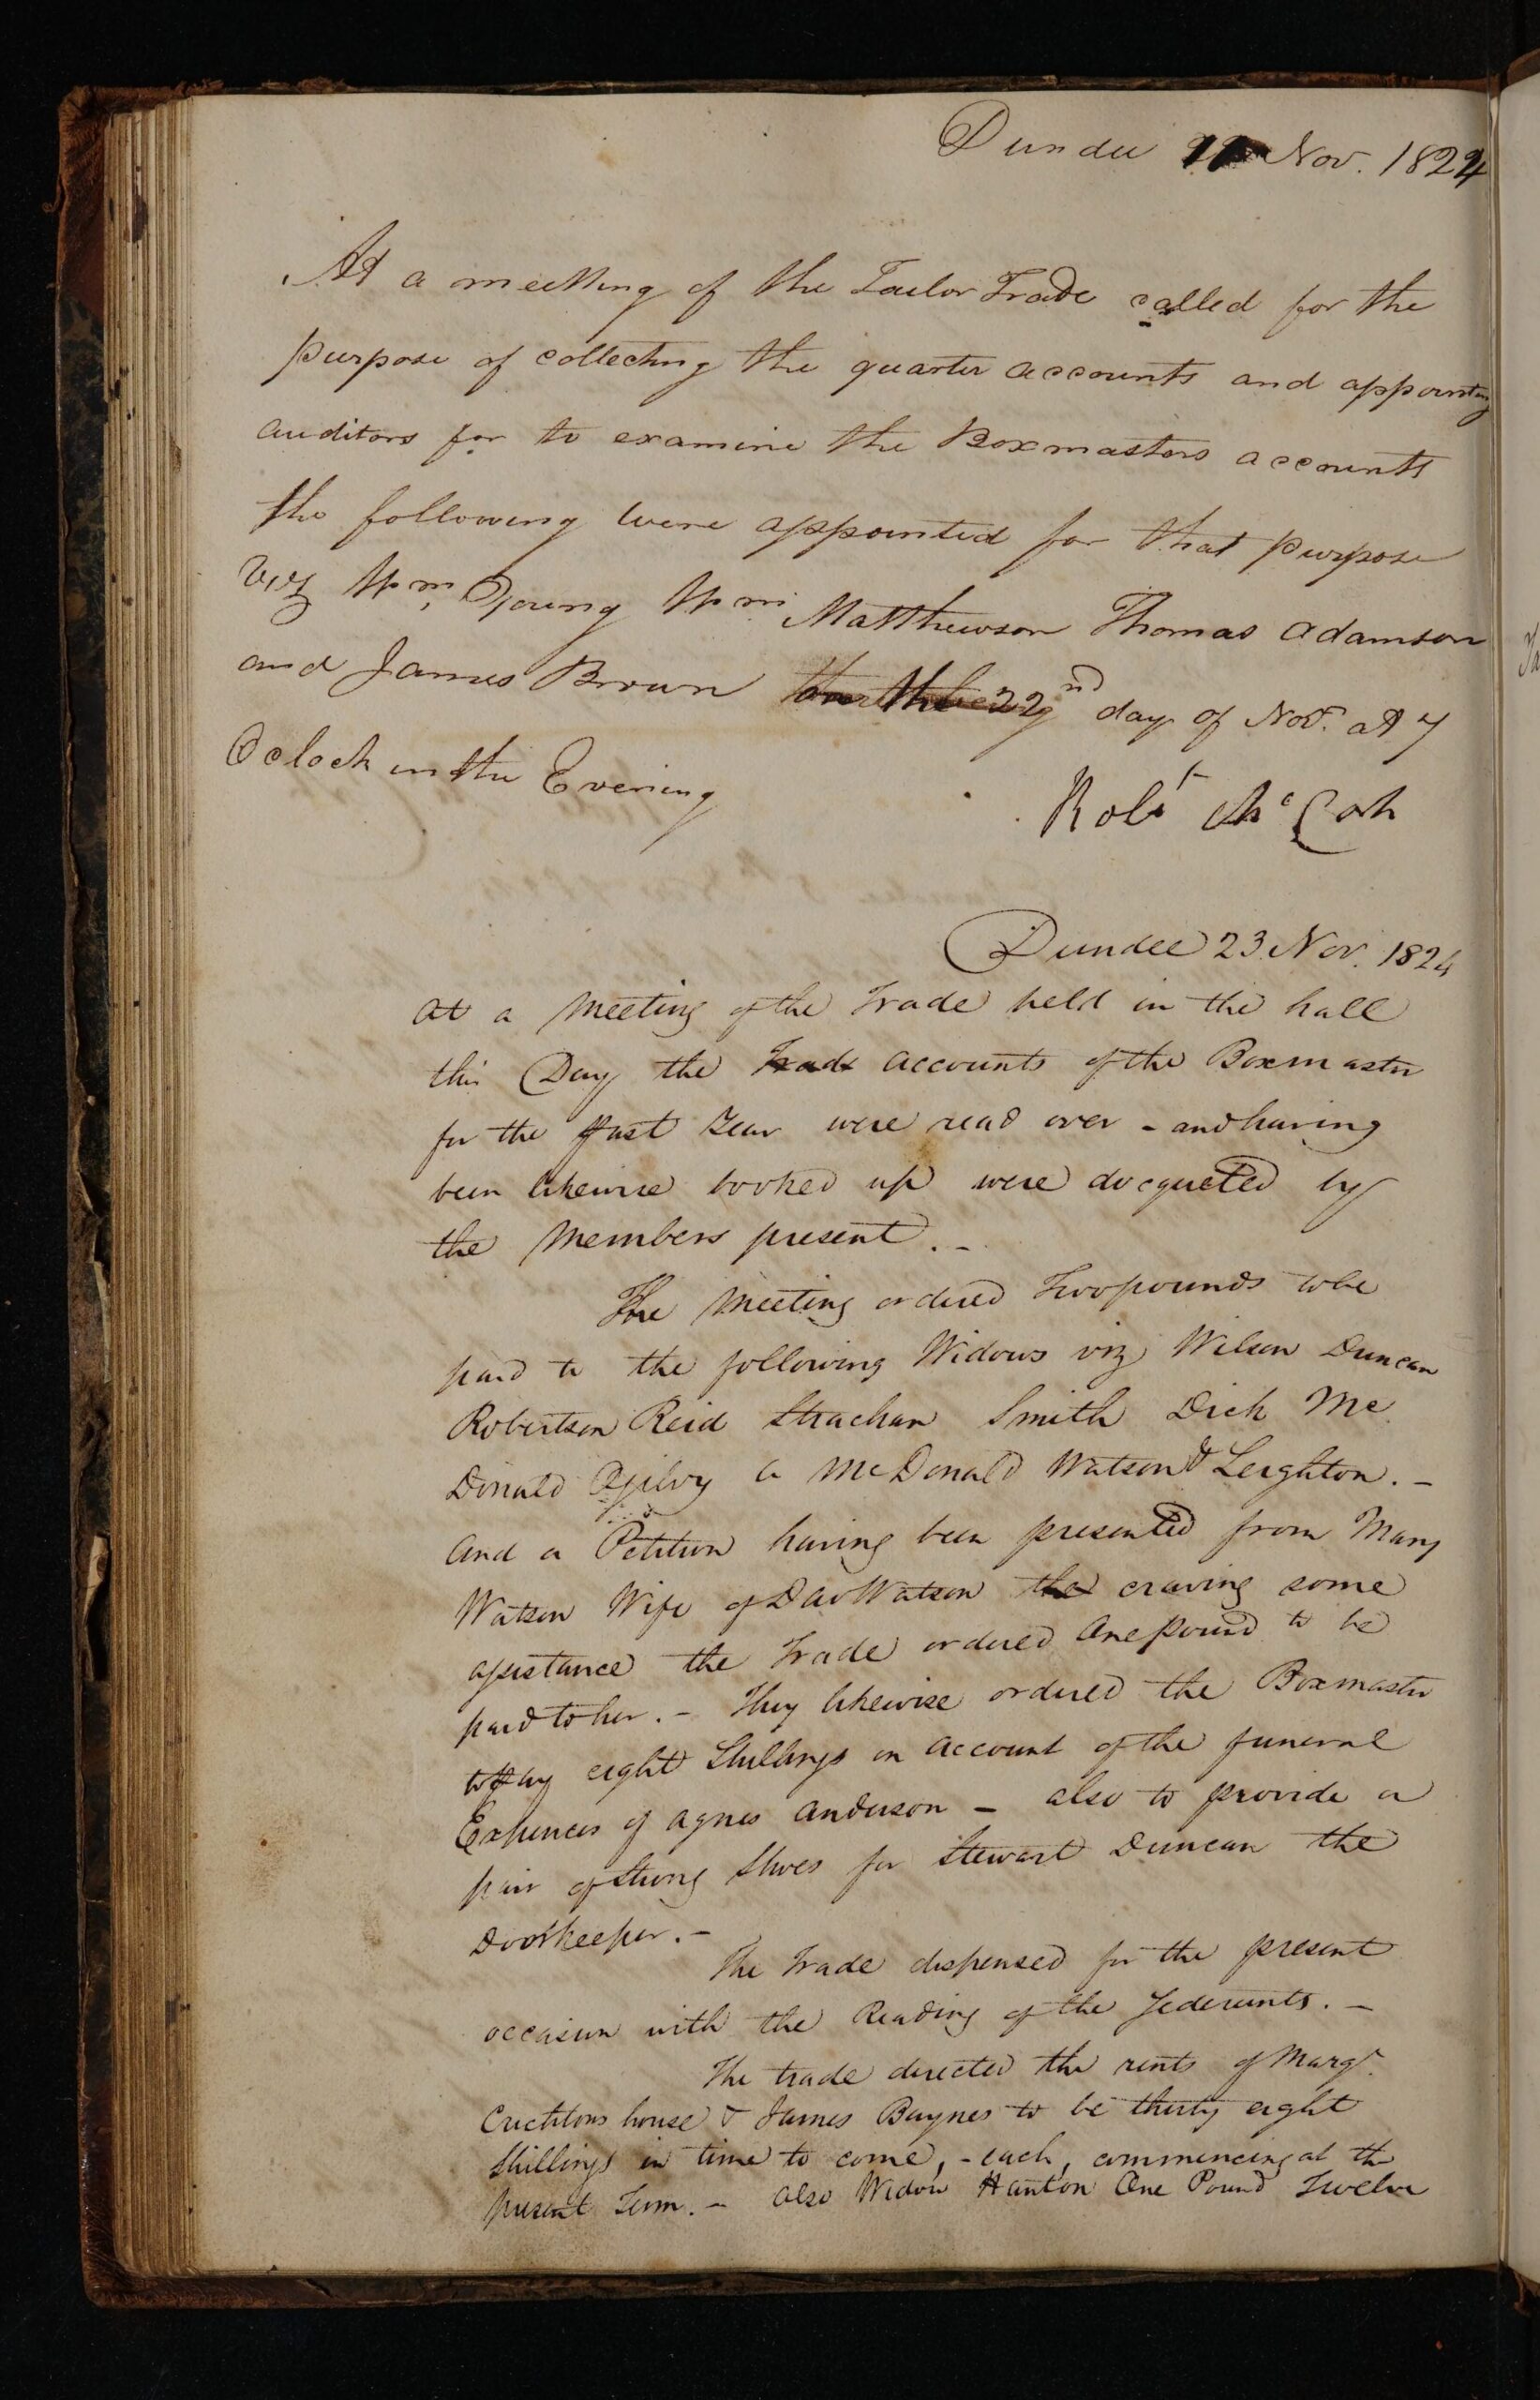 Dundee 11 Nov. 1824
At a meetting of the Tailor Trade called for the
purpose of collecting the quarter accounts and appointing
auditors for to examine the Boxmasters accounts
the following were appointed for that purpose
Viz Wm. Young Wm. Matthewson Thomas Adamson
and James Brown 22nd day of Novr. at 7
Oclock in the Evening
Robt McCosh
Dundee 23. Nov. 1824
At a Meeting of the Trade held in the hall
this Day the Trade accounts of the Boxmaster
for the past Year were read over - and having
been likewise booked up were docqueted by
the Members present. -
The Meeting ordered Two pounds to be
paid to the following Widows viz Wilson Duncan
Robertson Reid Strachan Smith Dick Mc
Donald Ogilvy a McDonald Watson & Leighton. -
And a Petition having been presented from Mary
Watson Wife of Dav Watson the craving some
assistance the Trade ordered One Pound to be
paid to her. - They likewise ordered the Boxmaster
to pay eight Shillings on account of the funeral
Expences of Agnes Anderson - also to provide a
pair of Strong Shoes for Stewart Duncan the
Doorkeeper. -
The Trade dispensed for the present
occasion with the Reading of the Sederunts. -
The trade directed the rents of Margt.
Crichtons house & James Baynes to be thirty eight
Shillings in time to come, - each, commencing at the
present Term. - also Widow Hanton One Pound Twelve